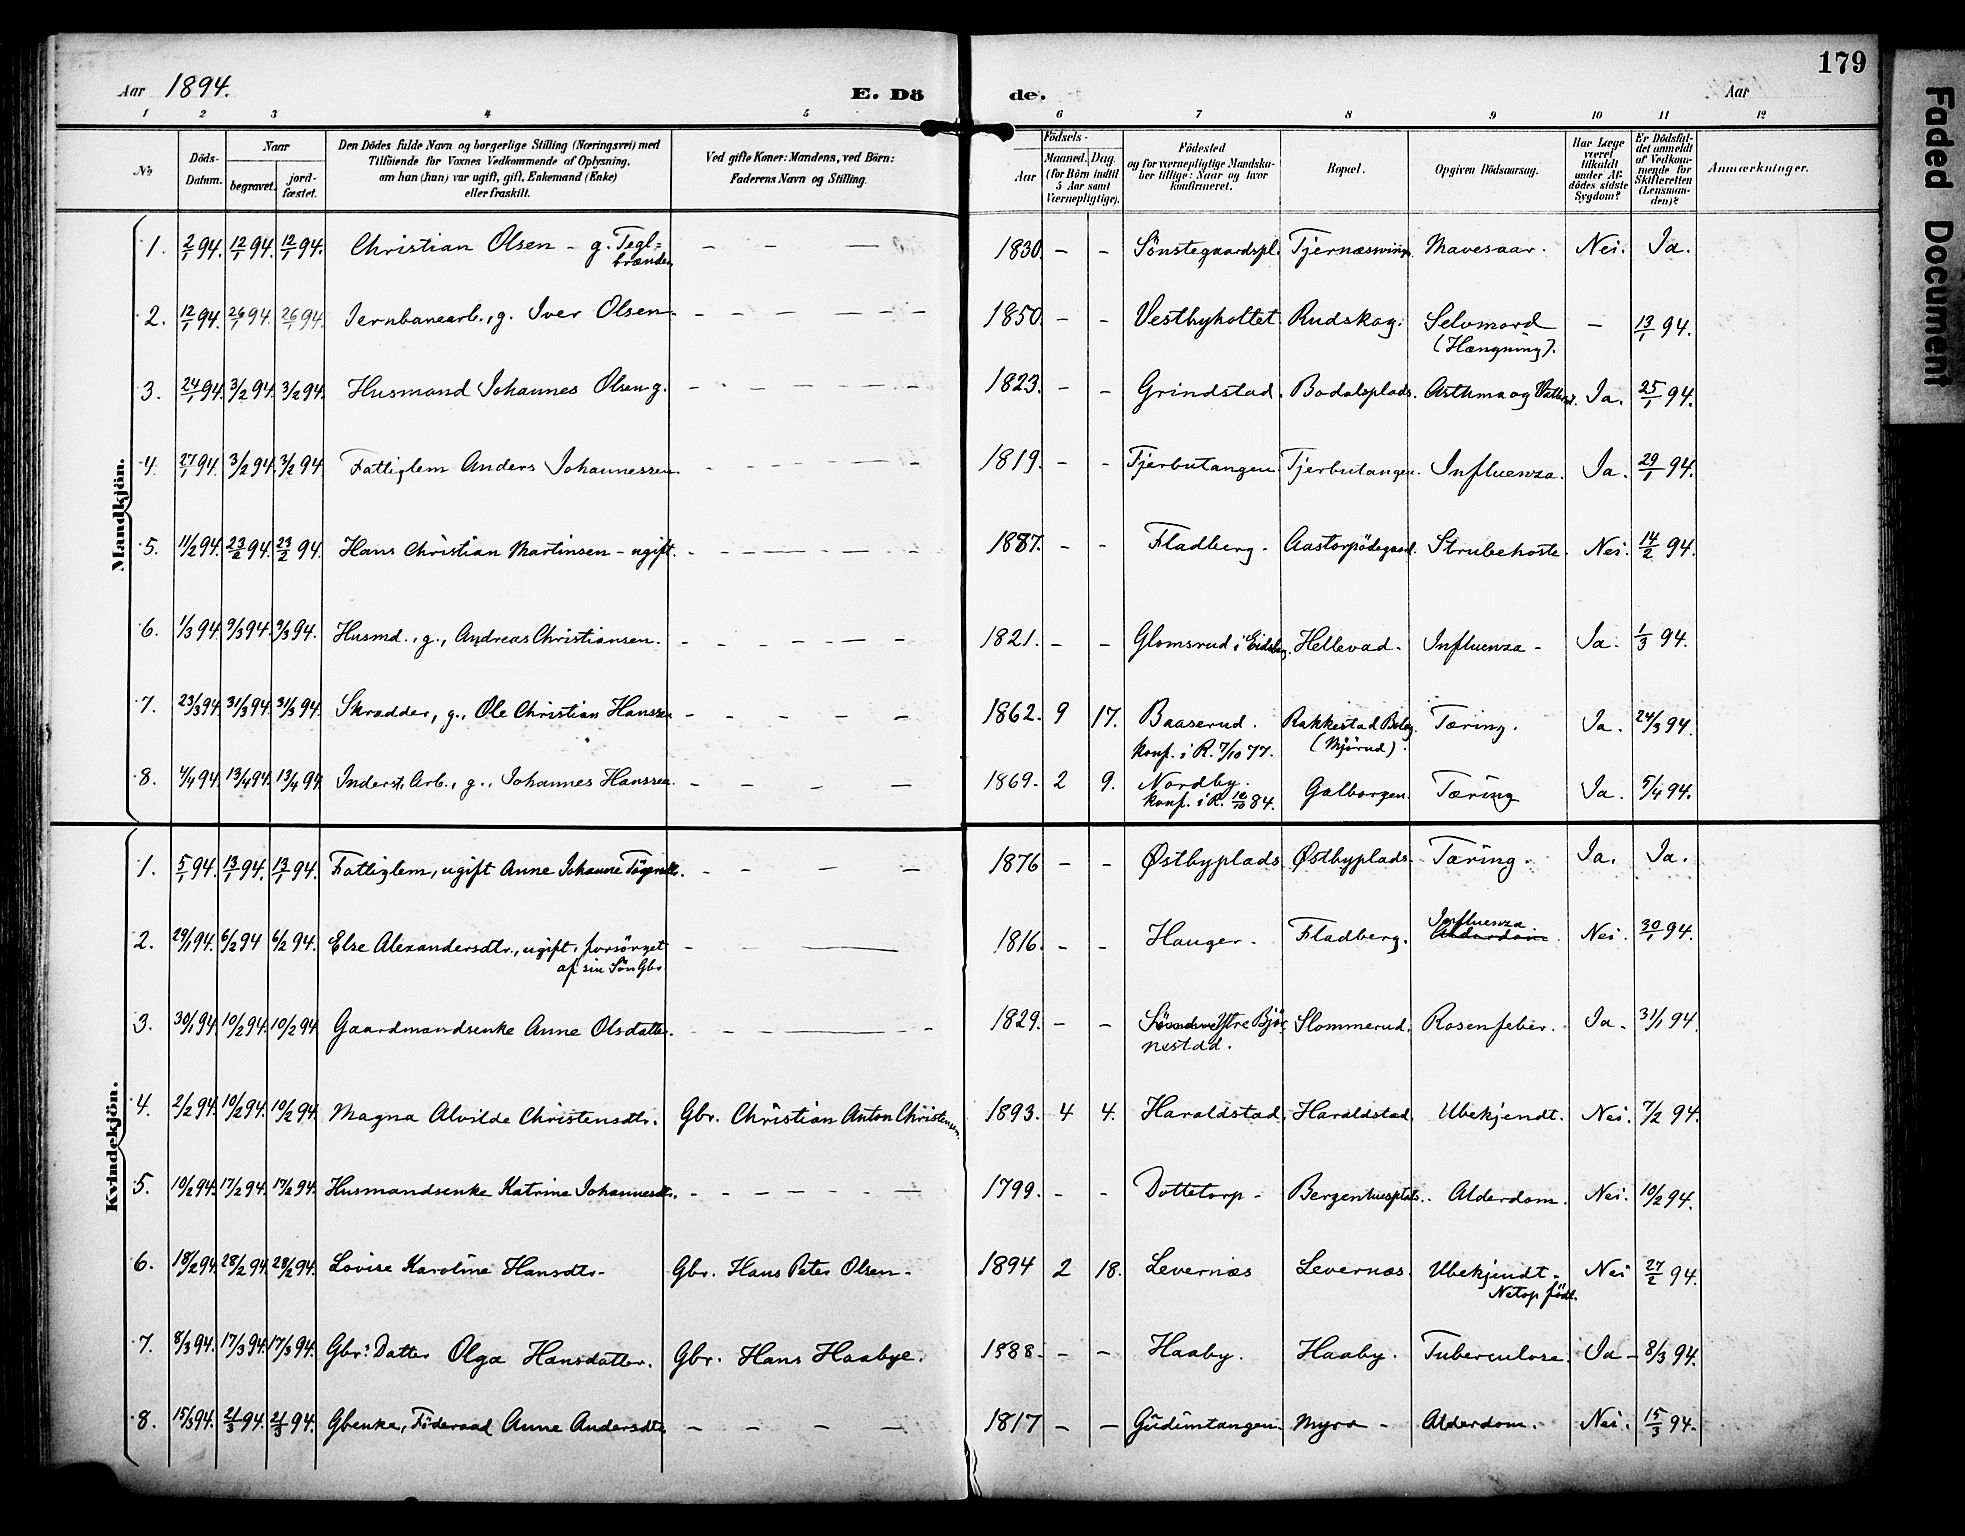 179
Aar 1894. E. Dö de. Aar
1 2 3 4 5 6 7 8 9 10 11 12
No
Döds-Datum.
Naar
begravet.
jord-fæstet.
Den Dödes fulde Navn og borgerlige Stilling (Næringsvei) med
Tilföiende for Voxnes Vedkommende af Oplysning,
om han (hun) var ugift, gift, Enkemand (Enke)
eller fraskilt.
Ved gifte Koner: Mandens, ved Börn:
Faderens Navn og Stilling.
Födsels-
Aar
Maaned. Dag.
(for Börn indtil
5 Aar samt
Værnepligtige).
Födested
og for værnepligtige Mandska-
ber tillige: Naar og hvor
konfirmeret.
Bopæl.
Opgiven Dödsaarsag.
Har Læge
været
tilkaldt
under Af-
dödes sidste
Sygdom?
Er Dödsfal-
det anmeldt
af Vedkom-
mende for
Skifteretten
(Lensman-
den)?
Anmærkninger.
Mandkjön.
1. 2/1 94. 12/1 94. 12/1 94. Christian Olsen - g. Tegl=
brænder - - — 1830. - - Sönstegaardspl. Tjernæsvingn. Mavesaar. Nei. Ja.
2. 12/1 94. 26/1 94. 26/1 94. Jernbanearb., g. Iver Olsen. - - — — - - 1850. - - Vestbyholtet. Rudskog. Selvmord
(Hængning). - 13/1 94.
3. 24/1 94. 3/2 94. 3/2 94. Husmand Johannes Olsen g. - - - - - - 1823. - - Grindstad. Bodalsplads. Asthma og Ja. 25/1 94.
4. 27/1 94. 3/2 94. 3/2 94. Fattiglem Anders Johannessen. - - - - - - 1819. - - Tjerbutangen. Tjerbutangen. Influenza. Ja. 29/1 94.
5. 11/2 94. 23/2 94. 23/2 94. Hans Christian Martinsen - ugift. - - - - - - 1887. - - Fladberg. Aastorpödegaard. Strubehoste. Nei. 14/2 94.
6. 1/3 94. 9/3 94. 9/3 94. Husmd., g., Andreas Christiansen. - - - - - - 1821. - - Glomsrud i Eidsberg. Hellevad. Influenza - Ja. 1/3 94.
7. 23/3 94. 31/3 94. 31/3 94. Skrædder, g., Ole Christian Hanssen - - - - 1862. 9 17. Baaserud.
konf. i R. 7/10 77. Rakkestad
(Mjørud). Tæring. Ja. 24/3 94.
8. 4/4 94. 13/4 94. 13/4 94 Inderst, Arb., g., Johannes Hanssen. - - - - 1869. 2 9. Nordby.
konf. i R. 12/10 84. Galborgen. Tæring Ja. 5/4 94.
Kvindekjön.
1. 5/1 94. 13/1 94. 13/1 94. Fattiglem, ugift Anne Johanne - - - - 1876 - - Østbyplads Østbyplads. Tæring. Ja. Ja.
2. 29/1 94. 6/2 94 6/2 94. Else Alexandersdtr., ugift, forsörget
af sin Sön Gbr. - - — 1816. - - Hauger. Fladberg. Influenza
Alderdom. Nei. 30/1 94.
3. 30/1 94. 10/2 94. 10/2 94. Gaardmandsenke Anne Olsdatter. - - - - - 1829. - - Söndre Ytre Bjør
nestad. Slommerud. Rosenfeber. Ja - 31/1 94.
4. 2/2 94. 10/2 94. 10/2 94. Magna Alvilde Christensdtr. Gbr. Christian Anton Christensen. 1893. 4 4. Haraldstad. Haraldstad. Ubekjendt. Nei. 7/2 94.
5. 10/2 94. 17/2 94. 17/2 94. Husmandsenke Katrine Johannesdtr. - - - - - - 1799. - - Dottetorp - Bergenhusplads. Alderdom. Nei. 10/2 94.
6. 18/2 94. 28/2 94. 28/2 94. Lovise Karoline Hansdtr- Gbr. Hans Peter Olsen - 1894 2 18. Levernæs Levernæs. Ubekjendt.
Netop född. Nei 27/2 94.
7. 8/3 94. 17/3 94. 17/3 94. Gbr: Datter Olga Hansdatter. Gbr. Hans Haabye. 1888. - - Haaby. Haaby. Tuberculose. Ja - 8/3 94.
8. 15/3 94. 21/3 94. 21/3 94. Gbenke, Föderaad Anne Andersdtr. - - - - 1817 - - Gudimtangen. Myra - Alderdom. Nei. 15/3 94.
Faded Document